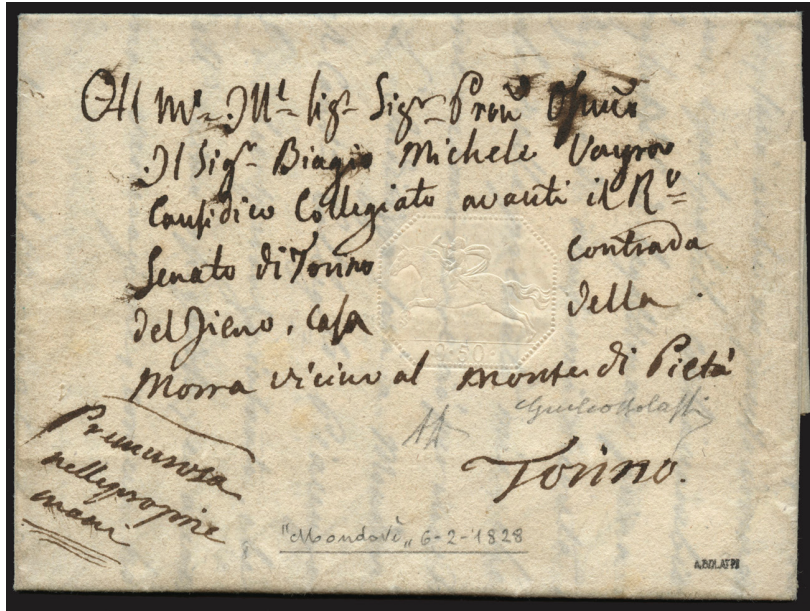 All M.to Ill.e Sig.r Sig.r Pron
Il Sig.r Biagio Michele Vayra
Causidico Collegiato avanti il R.o
Senato di Torino contrada
del Fieno, casa della
Morra vicino al monte di Pietà
Torino.
Premurosa
nelle proprie
mani
0.50
"Mondovì" 6-2-1828
A.BOLAFFI